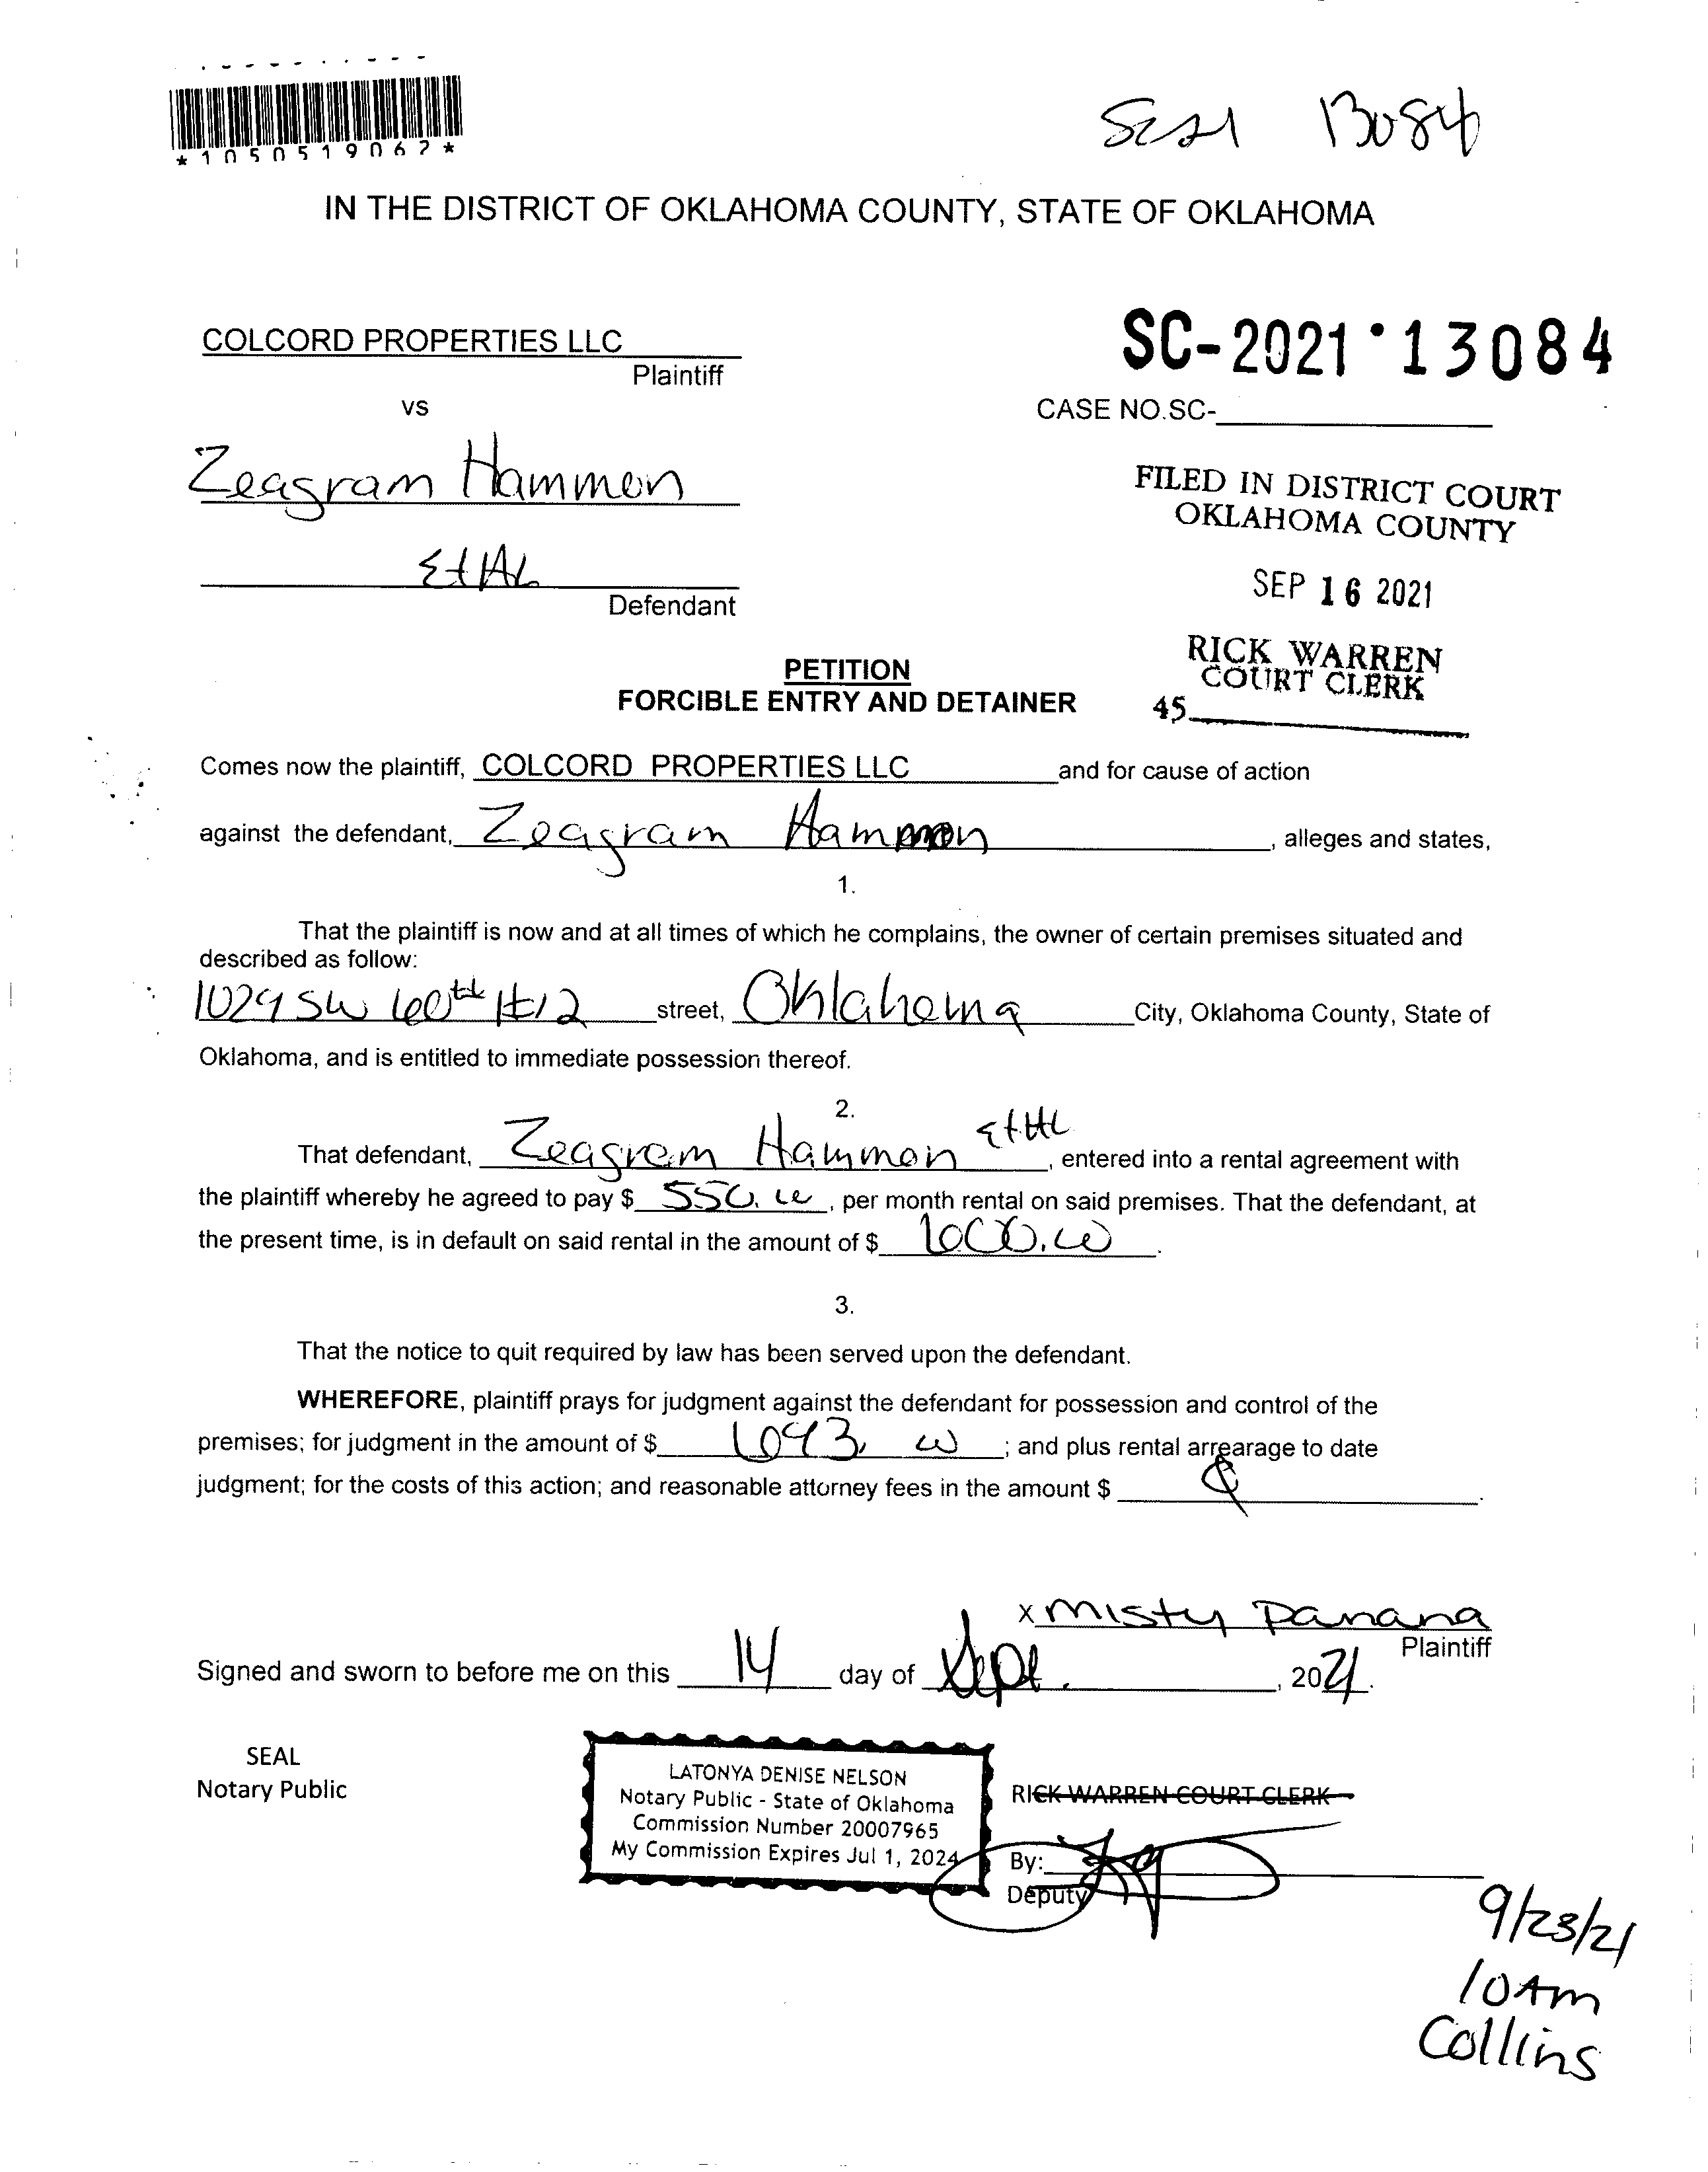 *1050519062*
SC21 13084
IN THE DISTRICT OF OKLAHOMA COUNTY, STATE OF OKLAHOMA
COLCORD PROPERTIES LLC
Plaintiff
SC-2021 • 13084
vs
CASE NO.SC-
Zeagram Hammon
FILED IN DISTRICT COURT
OKLAHOMA COUNTY
Et AL
SEP 16 2021
Defendant
RICK WARREN
COURT CLERK
45
PETITION
FORCIBLE ENTRY AND DETAINER
Comes now the plaintiff, COLCORD PROPERTIES LLC and for cause of action
against the defendant, Zeagram Hammon, alleges and states,
1.
That the plaintiff is now and at all times of which he complains, the owner of certain premises situated and
described as follow:
1029 SW 60th #12 street, Oklahoma City, Oklahoma County, State of
Oklahoma, and is entitled to immediate possession thereof.
2.
That defendant, Zeagram Hammon Et AL, entered into a rental agreement with
the plaintiff whereby he agreed to pay $ 550.00, per month rental on said premises. That the defendant, at
the present time, is in default on said rental in the amount of $
3.
That the notice to quit required by law has been served upon the defendant.
WHEREFORE, plaintiff prays for judgment against the defendant for possession and control of the
premises; for judgment in the amount of $ ; and plus rental arrearage to date
judgment; for the costs of this action; and reasonable attorney fees in the amount $
x Misty Panana
Plaintiff
Signed and sworn to before me on this 14 day of Sept., 2021.
SEAL
Notary Public
LATONYA DENISE NELSON
Notary Public - State of Oklahoma
Commission Number 20007965
My Commission Expires Jul 1, 2024
RICK WARREN COURT CLERK
By:
Deputy
9/23/21
10Am
Collins